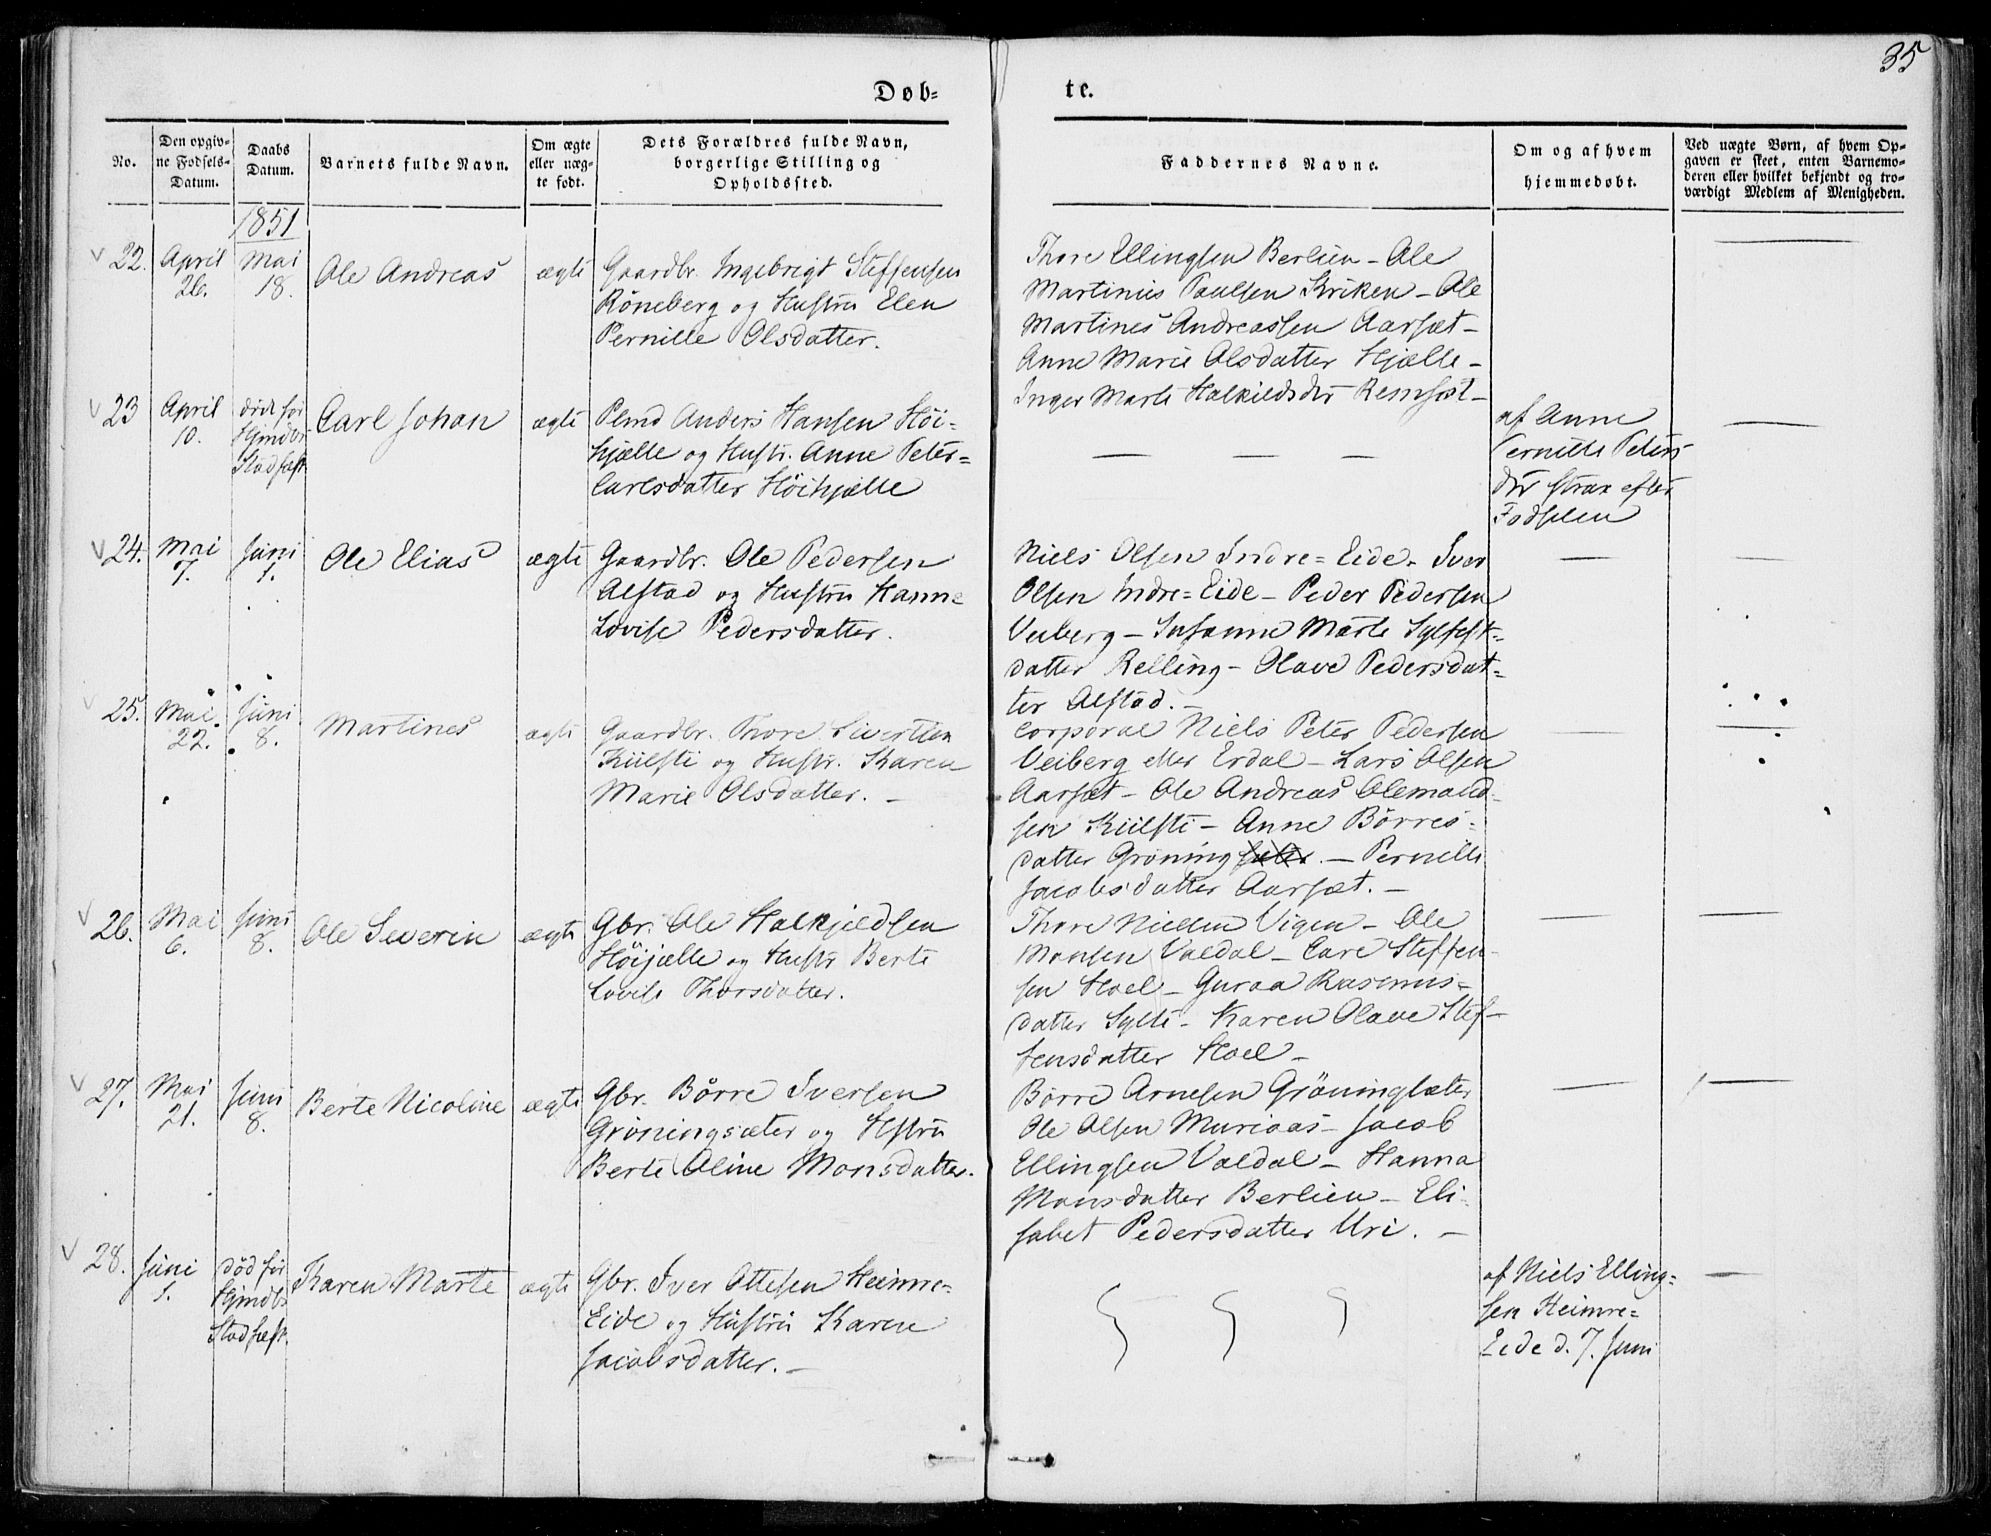 35
Døb-
te.
No.
Den opgiv-
ne Fødsels-
Datum.
Daabs
Datum.
Barnets fulde Navn.
Om ægte
eller uæg-
te født.
Dets Forældres fulde Navn,
borgerlige Stilling og
Opholdssted.
Faddernes Navne.
Om og af hvem
hjemmedøbt.
Ved uægte Børn, af hvem Op-
gaven er skeet, enten Barnemo-
deren eller hvilket bekjendt og tro-
værdigt Medlem af Menigheden.
1851
22. April 26. Mai 18. Ole Andreas ægte
Gaardbr. Ingebrigt Steffensen
Röneberg og Hustru Elen
Pernille Olsdatter.
Thore Ellingsen Berlien – Ole
Martinus Paulsen Kriken – Ole
Martines Andreassen Aarsæt –
Anne Marie Olsdatter Hjælle –
Inger Marte Halkildsdtr Remset –
23 April 10. död för Hjmdbs Stadfæst. Carl Johan ægte
Plmd Anders Hansen Höi-
hjælle og Hustr. Anne Peter-
Carlsdatter Höihjælle
af Anne
Pernille Peters
dtr strax efter
Fødselen
24. Mai 7. Juni 1. Ole Elias ægte
Gaardbr. Ole Pedersen
Alstad og Hustru Hanne
Lovise Pedersdatter.
Niels Olsen Indre=Eide. Iver
Olsen Indre=Eide – Peder Pedersen
Veiberg – Susanne Marte Sylfest-
datter Relling – Olave Pedersdat-
ter Alstad. –
25. Mai 22. Juni 8. Martines ægte
Gaardbr. Thore Sivertsen
Külsti og Hustr. Karen
Marie Olsdatter. –
Corporal Niels Peter Pedersen
Veiberg eller Erdal – Lars Olsen
Aarsæt – Ole Andreas Olemand-
sen Külsti – Anne Börres-
datter Gröning – Pernille
Jacobsdatter Aarsæt. –
26. Mai 6. Juni 8. Ole Severin ægte
Gbr. Ole Halkjeldsen
Höijælle og Hustr Berte
Lovise Thorsdatter.
Thore Nielsen Vigen – Ole
Monsen Valdal – Carl Steffen-
sen Hoel – Guraa Rasmus-
datter Sylte – Karen Olave Stef-
fensdatter Hoel –
27. Mai 21. Juni 8. Berte Nicoline ægte
Gbr. Börre Iversen
Gröningsæter og Hstru
Berte Oline Monsdatter.
Börre Arnesen Gröningsæter
Ole Olsen Muriaas – Jacob
Ellingsen Valdal – Hanna
Monsdatter Berlien – Eli-
sabet Pedersdatter Uri. –
28. Juni 1. död för Hjmdbs Stadfæst. Karen Marte ægte
Gbr. Iver Ottesen Heimre-
Eide og Hustru Karen
Jacobsdatter. –
af Niels Elling-
sen Heimre-
Eide d. 7. Juni